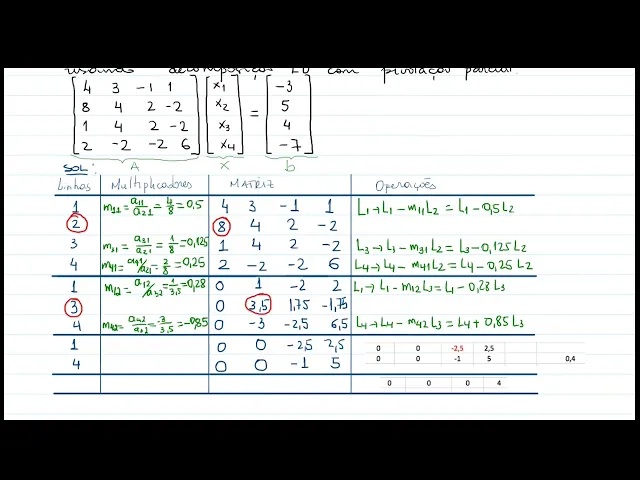 usando decomposição LU com pivotação parcial.
4 3 -1 1 x1 -3
8 4 2 -2 x2 = 5
1 4 2 -2 x3 4
2 -2 -2 6 x4 -7
SOL: A x b
Linhas Multiplicadores MATRIZ Operações
1 m11 = a11/a21 = 4/8 = 0,5 4 3 -1 1 L1→L1-m11L2 = L1-0,5L2
2 8 4 2 -2
3 m31 = a31/a21 = 1/8 = 0,125 1 4 2 -2 L3→L3-m31L2 = L3-0,125L2
4 m41 = a41/a21 = 2/8 = 0,25 2 -2 -2 6 L4→L4-m41L2 = L4-0,25L2
1 m12 = a12/a32 = 1/3,5 = 0,28 0 1 -2 2 L1→L1-m12L3 = L1-0,28L3
3 0 3,5 1,75 -1,75
4 m42 = a42/a32 = -3/3,5 = -0,85 0 -3 -2,5 6,5 L4→L4-m42L3 = L4+0,85L3
1 0 0 -2,5 2,5 0 0 -2,5 2,5
4 0 0 -1 5 0 0 -1 5 0,4
0 0 0 4